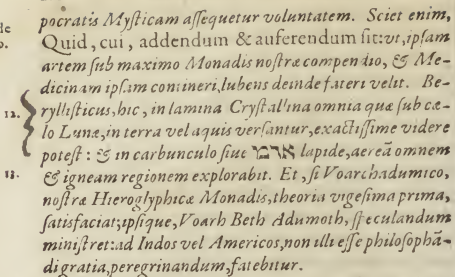 pocratis Myſticam aſſequetur voluntatem. Sciet enim,
Quid, cui, addendum & auferendum ſit: vt, ipſam
artem ſub maximo Monadis noſtræ compendio, & Me-
dicinam ipſam contineri, lubens deinde fateri velit. Be-
12. ryllisticus, hic, in lamina Cryſtallina omnia quæ ſub cæ-
lo Lunæ, in terra vel aquis verſantur, exactiſſime videre
potest: & in carbunculo ſiue ארמי lapide, aereā omnem
13. & igneam regionem explorabit. Et, ſi Voarchadumico,
noſtræ Hieroglyphicæ Monadis, theoria vigeſima prima,
ſatisfaciat; ipſique, Voarh Beth Adumoth, ſpeculandum
miniſtret: ad Indos vel Americos, non illi eſſe philoſophā-
di gratia, peregrinandum, fatebitur.